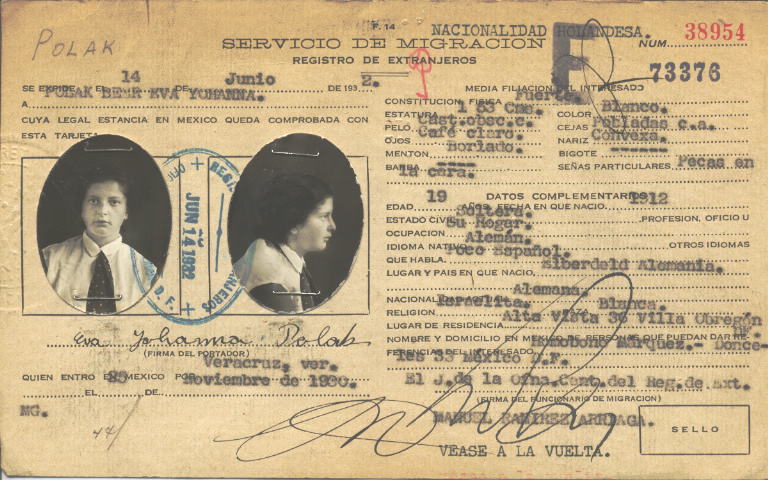 F. 14
NACIONALIDAD HOLANDESA.
POLAK
SERVICIO DE MIGRACION
NUM. 38954
REGISTRO DE EXTRANJEROS
F
73376
SE EXPIDE EL 14 DE Junio DE 193 2.
A POLAK BEER EVA YOHANNA.
CUYA LEGAL ESTANCIA EN MEXICO QUEDA COMPROBADA CON
ESTA TARJETA
MEDIA FILIACION DEL INTERESADO
CONSTITUCION FISICA Fuerte.
ESTATURA 1 63 Cms. COLOR Blanco.
PELO Cast.obsc.c. CEJAS Pobladas c.a.
OJOS Café claro. NARIZ Convexa.
MENTON Borlado. BIGOTE -------
BARBA ---- SEÑAS PARTICULARES Pecas en
la cara.
DATOS COMPLEMENTARIOS
EDAD 19 AÑOS, FECHA EN QUE NACIO, 1912
ESTADO CIVIL Soltera. PROFESION, OFICIO U
OCUPACION Su Hogar.
IDIOMA NATIVO Alemán. OTROS IDIOMAS
QUE HABLA. Poco Español.
LUGAR Y PAIS EN QUE NACIO, Elberdeld Alemania.
NACIONALIDAD Alemana.
RELIGION Israelita. RAZA Blanca.
LUGAR DE RESIDENCIA Alta Vista 36 Villa Obregón
DF.
NOMBRE Y DOMICILIO EN MEXICO DE PERSONAS QUE PUEDAN DAR RE-
FERENCIAS DEL INTERESADO Marquez.- Donce-
les 33 México D.F.
El J.de la Ofna.Cent.del Reg.de Ext.
(FIRMA DEL FUNCIONARIO DE MIGRACION)
MANUEL RAMIREZ ARRIAGA.
VEASE A LA VUELTA.
SELLO
JUN 14 1932
D. F.
Eva Johanna Polak
(FIRMA DEL PORTADOR)
QUIEN ENTRO EN MEXICO POR Veracruz, ver.
EL 25 DE Noviembre de 1930.
MG.
44